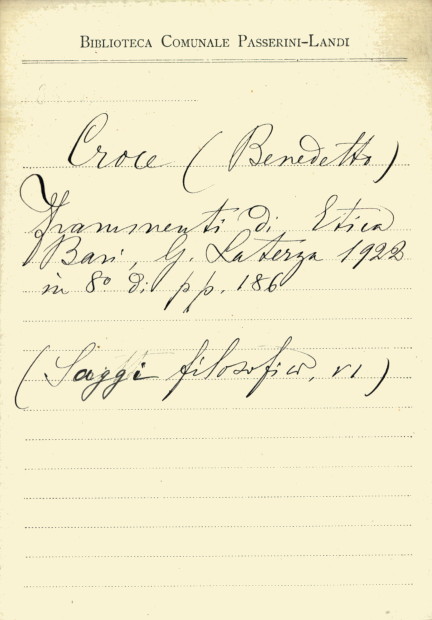 Biblioteca Comunale Passerini-Landi
Croce (Benedetto)
Frammenti di Etica
Bari, G. Laterza 1922
in 8º di pp. 186
(Saggi filosofici, VI)